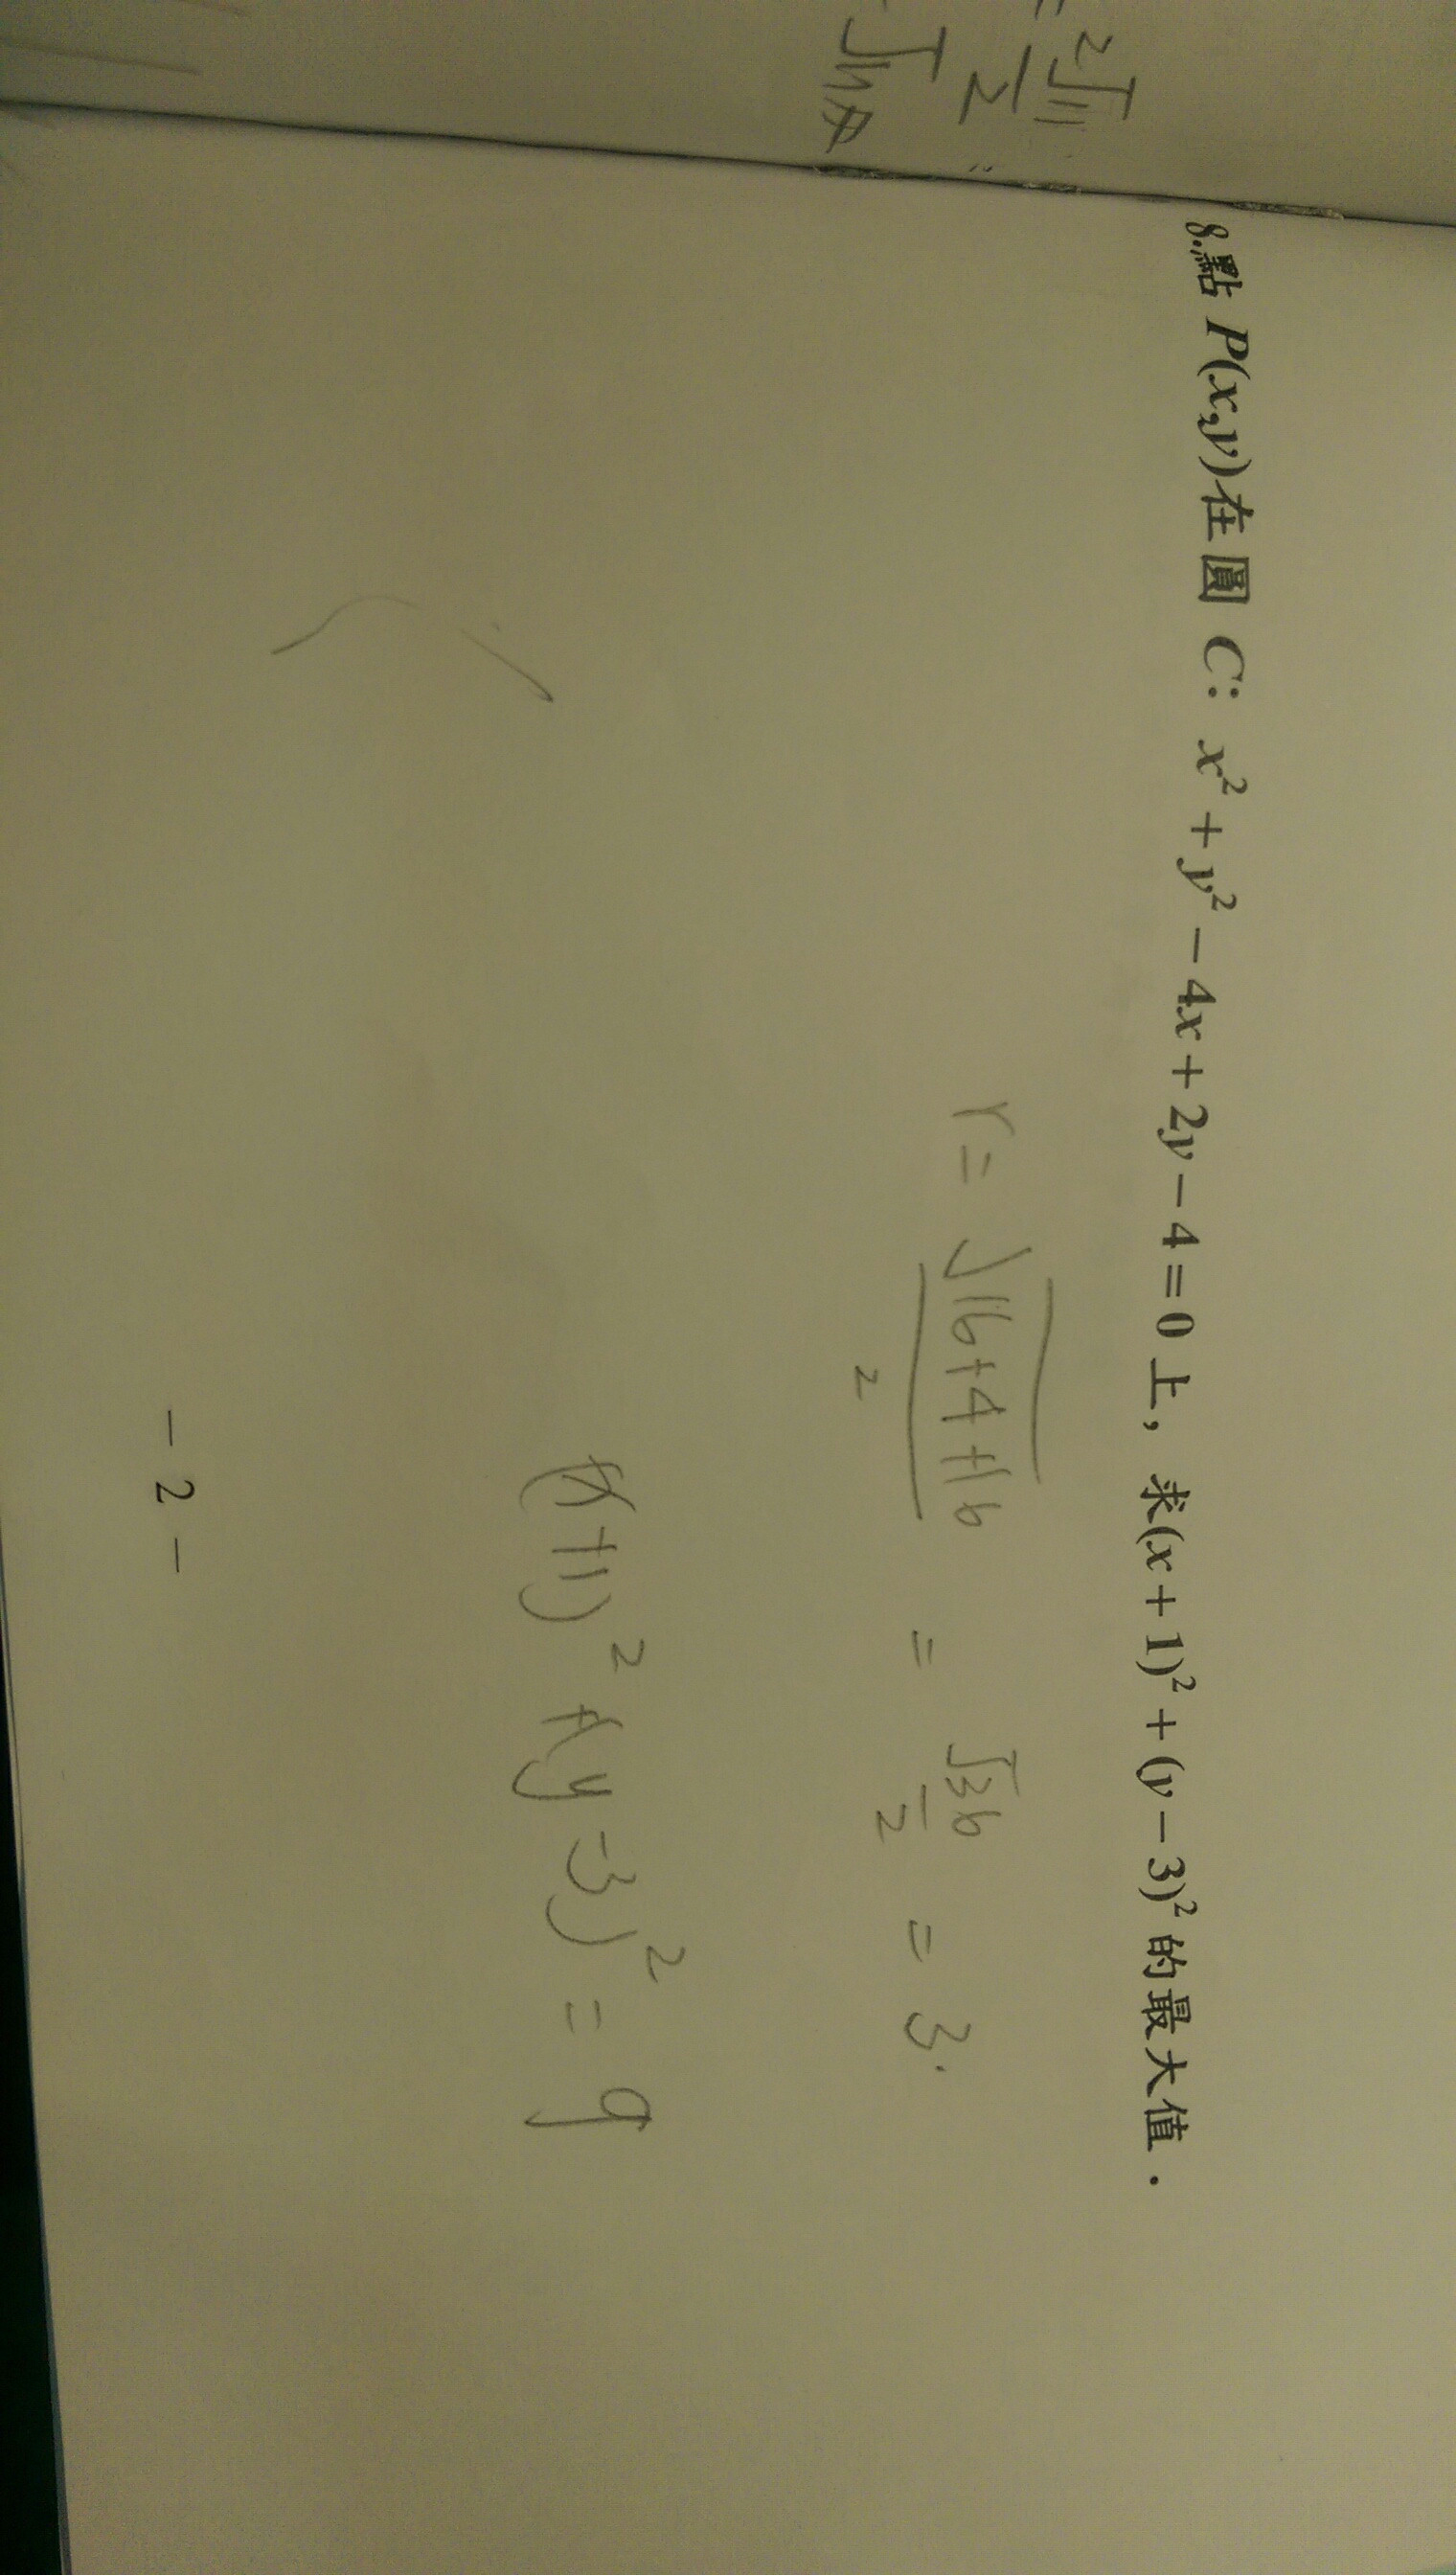 8.點 P(x,y)在圓 C: x² + y² − 4x + 2y − 4 = 0 上，求(x + 1)² + (y − 3)² 的最大值．
r = √16+4+16 / 2 = √36 / 2 = 3.
(x+1)² + (y-3)² = 9
− 2 −